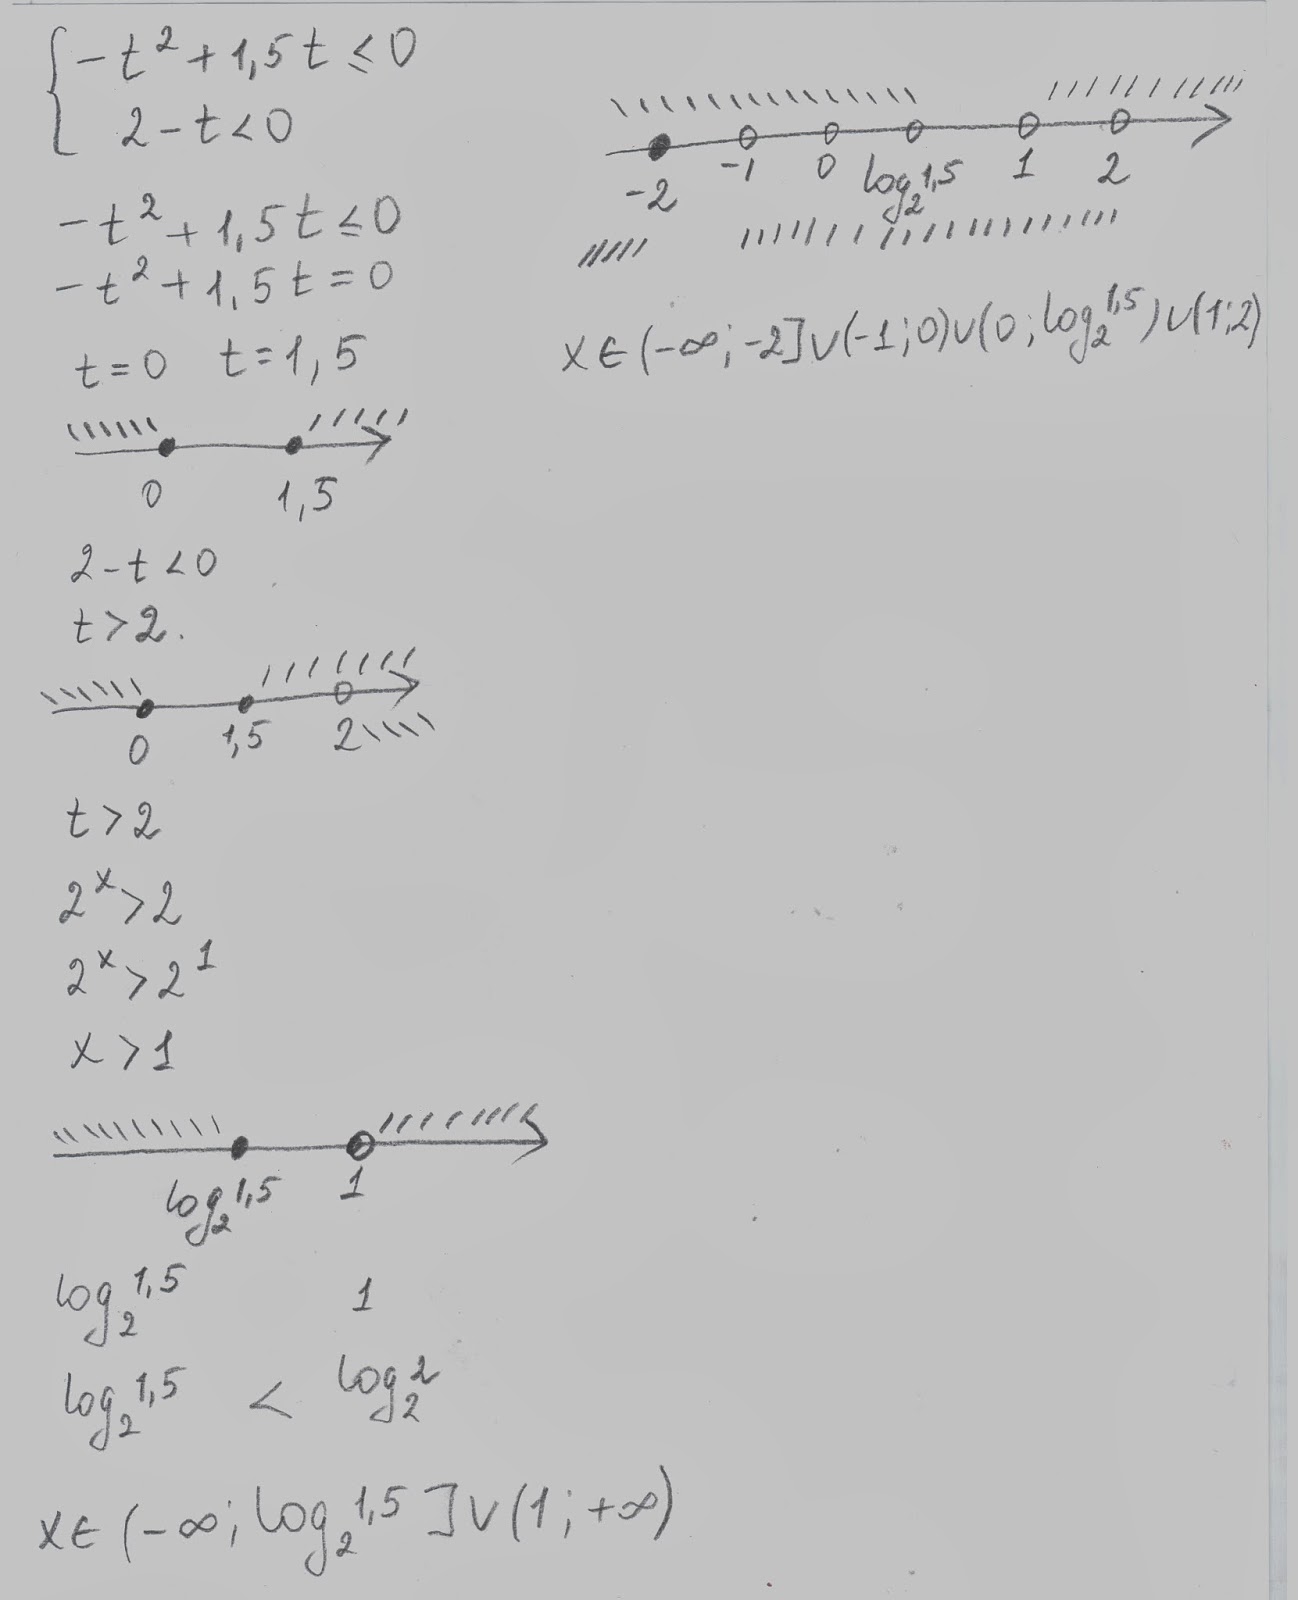 { -t² + 1,5t ≤ 0
2 - t < 0
-t² + 1,5t ≤ 0
-t² + 1,5t = 0
t = 0 t = 1,5
0 1,5
2 - t < 0
t > 2.
0 1,5 2
t > 2
2ˣ > 2
2ˣ > 2¹
x > 1
log₂1,5 1
log₂1,5 1
log₂1,5 < log₂2
x ∈ (-∞; log₂1,5] ∪ (1; +∞)
-2 -1 0 log₂1,5 1 2
x ∈ (-∞; -2] ∪ (-1; 0) ∪ (0; log₂1,5) ∪ (1; 2)